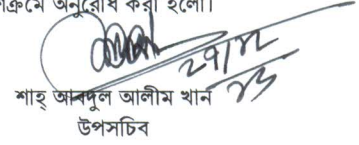 ক্রমে অনুরোধ করা হলো।
২৭/১২
২৩
শাহ্ আবদুল আলীম খান
উপসচিব